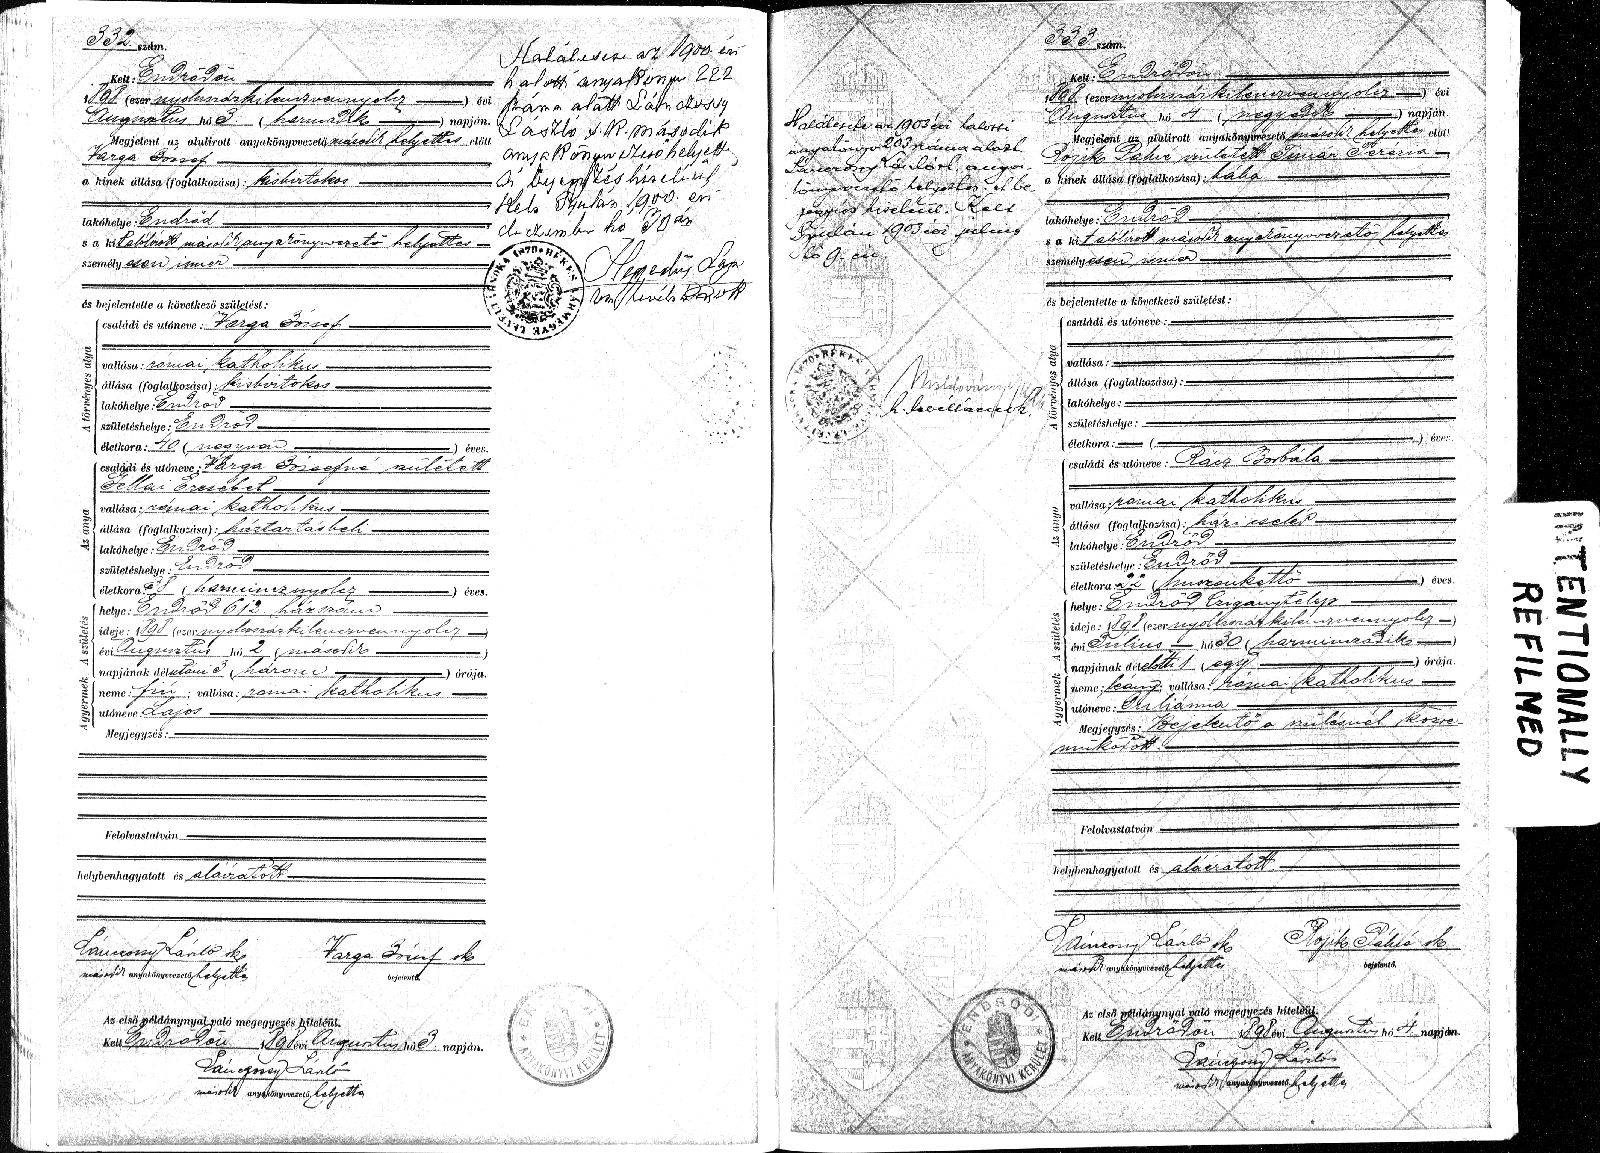 332 szám.
Kelt: Endrődön
1898 (ezer nyolczszázkilenczvennyolcz) évi
Augusztus hó 3. (harmadik) napján.
Megjelent az alulirott anyakönyvezető második helyettes előtt
Varga József
a kinek állása (foglalkozása): kisbirtokos
lakóhelye: Endrőd
s a kit alólirott másodk anyakönyvvezető helyettes
személyesen ismer
és bejelentette a következő születést:
A törvényes atya
családi és utóneve: Varga József
vallása: római katholikus
állása (foglalkozása): kisbirtokos
lakóhelye: Endrőd
születéshelye: Endrőd
életkora: 40 (negyven) éves.
Az anya
családi és utóneve: Varga Józsefné született
Gellai Erzsébet
vallása: római katholikus
állása (foglalkozása): háztartásbeli
lakóhelye: Endrőd
születéshelye: Endrőd
életkora: 38 (harmincznyolcz) éves.
A gyermek A születés
helye: Endrőd 612 házszám
ideje: 1898 (ezer nyolczszázkilenczvennyolcz)
évi Augusztus hó 2 (második)
napjának délutáni 3 (három) órája.
neme: fiú; vallása: római katholikus
utóneve: Lajos
Megjegyzés:
Felolvastatván
helybenhagyatott és aláiratott
Lánczony László sk Varga József sk
másodk anyakönyvvezető helyettes bejelentő.
Az első példánynyal való megegyezés hiteléül.
Kelt Endrődön 1898 évi Augusztus hó 3. napján.
Lánczony László
másodk anyakönyvvezető helyettes
Halálesete az 1900. évi
halotti anyakönyv 222
száma alatt Lánczony
László s. k. második
anyakönyvvezető helyettes
bejegyzés hiteléül
Kelt Gyulán 1900. évi
deczember hó 30 án
BÉKÉS VÁRMEGYE LEVÉLTÁRNOKA 1870
ENDRŐD
ANYAKÖNYVI KERÜLET
Halálesete az 1903 évi halotti
anyakönyv 203 száma alatt
Kelt
Gyulán 1903 évi
hó 9. én
h. levéltárnok
333 szám.
Kelt: Endrődön
1898 (ezer nyolczszázkilenczvennyolcz) évi
Augusztus hó 4 (negyedik) napján.
Megjelent az alulirott anyakönyvezető másodk helyettes előtt
Rojik Pálné született Timár Terézia
a kinek állása (foglalkozása): bába
lakóhelye: Endrőd
s a kit alólirott másodk anyakönyvvezető helyettes
személyesen ismer
és bejelentette a következő születést:
A törvényes atya
családi és utóneve:
vallása:
állása (foglalkozása):
lakóhelye:
születéshelye:
életkora: ( ) éves.
Az anya
családi és utóneve: Rácz Borbála
vallása: római katholikus
állása (foglalkozása): házi cseléd
lakóhelye: Endrőd
születéshelye: Endrőd
életkora 22 (huszonkettő) éves.
A gyermek A születés
helye: Endrőd Czigánytelep
ideje: 1898 (ezer nyolczszázkilenczvennyolcz)
évi Július hó 30 (harminczadik)
napjának délelőtti 1 (egy) órája.
neme: leány; vallása: római katholikus
utóneve: Juliánna
Megjegyzés: Bejelentő a szülésnél közre-
működött.
Felolvastatván
helybenhagyatott és aláiratott
Lánczony László sk Rojik Pálné sk
másodk anyakönyvvezető helyettes bejelentő.
Az első példánynyal való megegyezés hiteléül.
Kelt Endrődön 1898 évi Augusztus hó 4. napján.
Lánczony László
másodk anyakönyvvezető helyettes
ENDRŐD
ANYAKÖNYVI KERÜLET
INTENTIONALLY
REFILMED